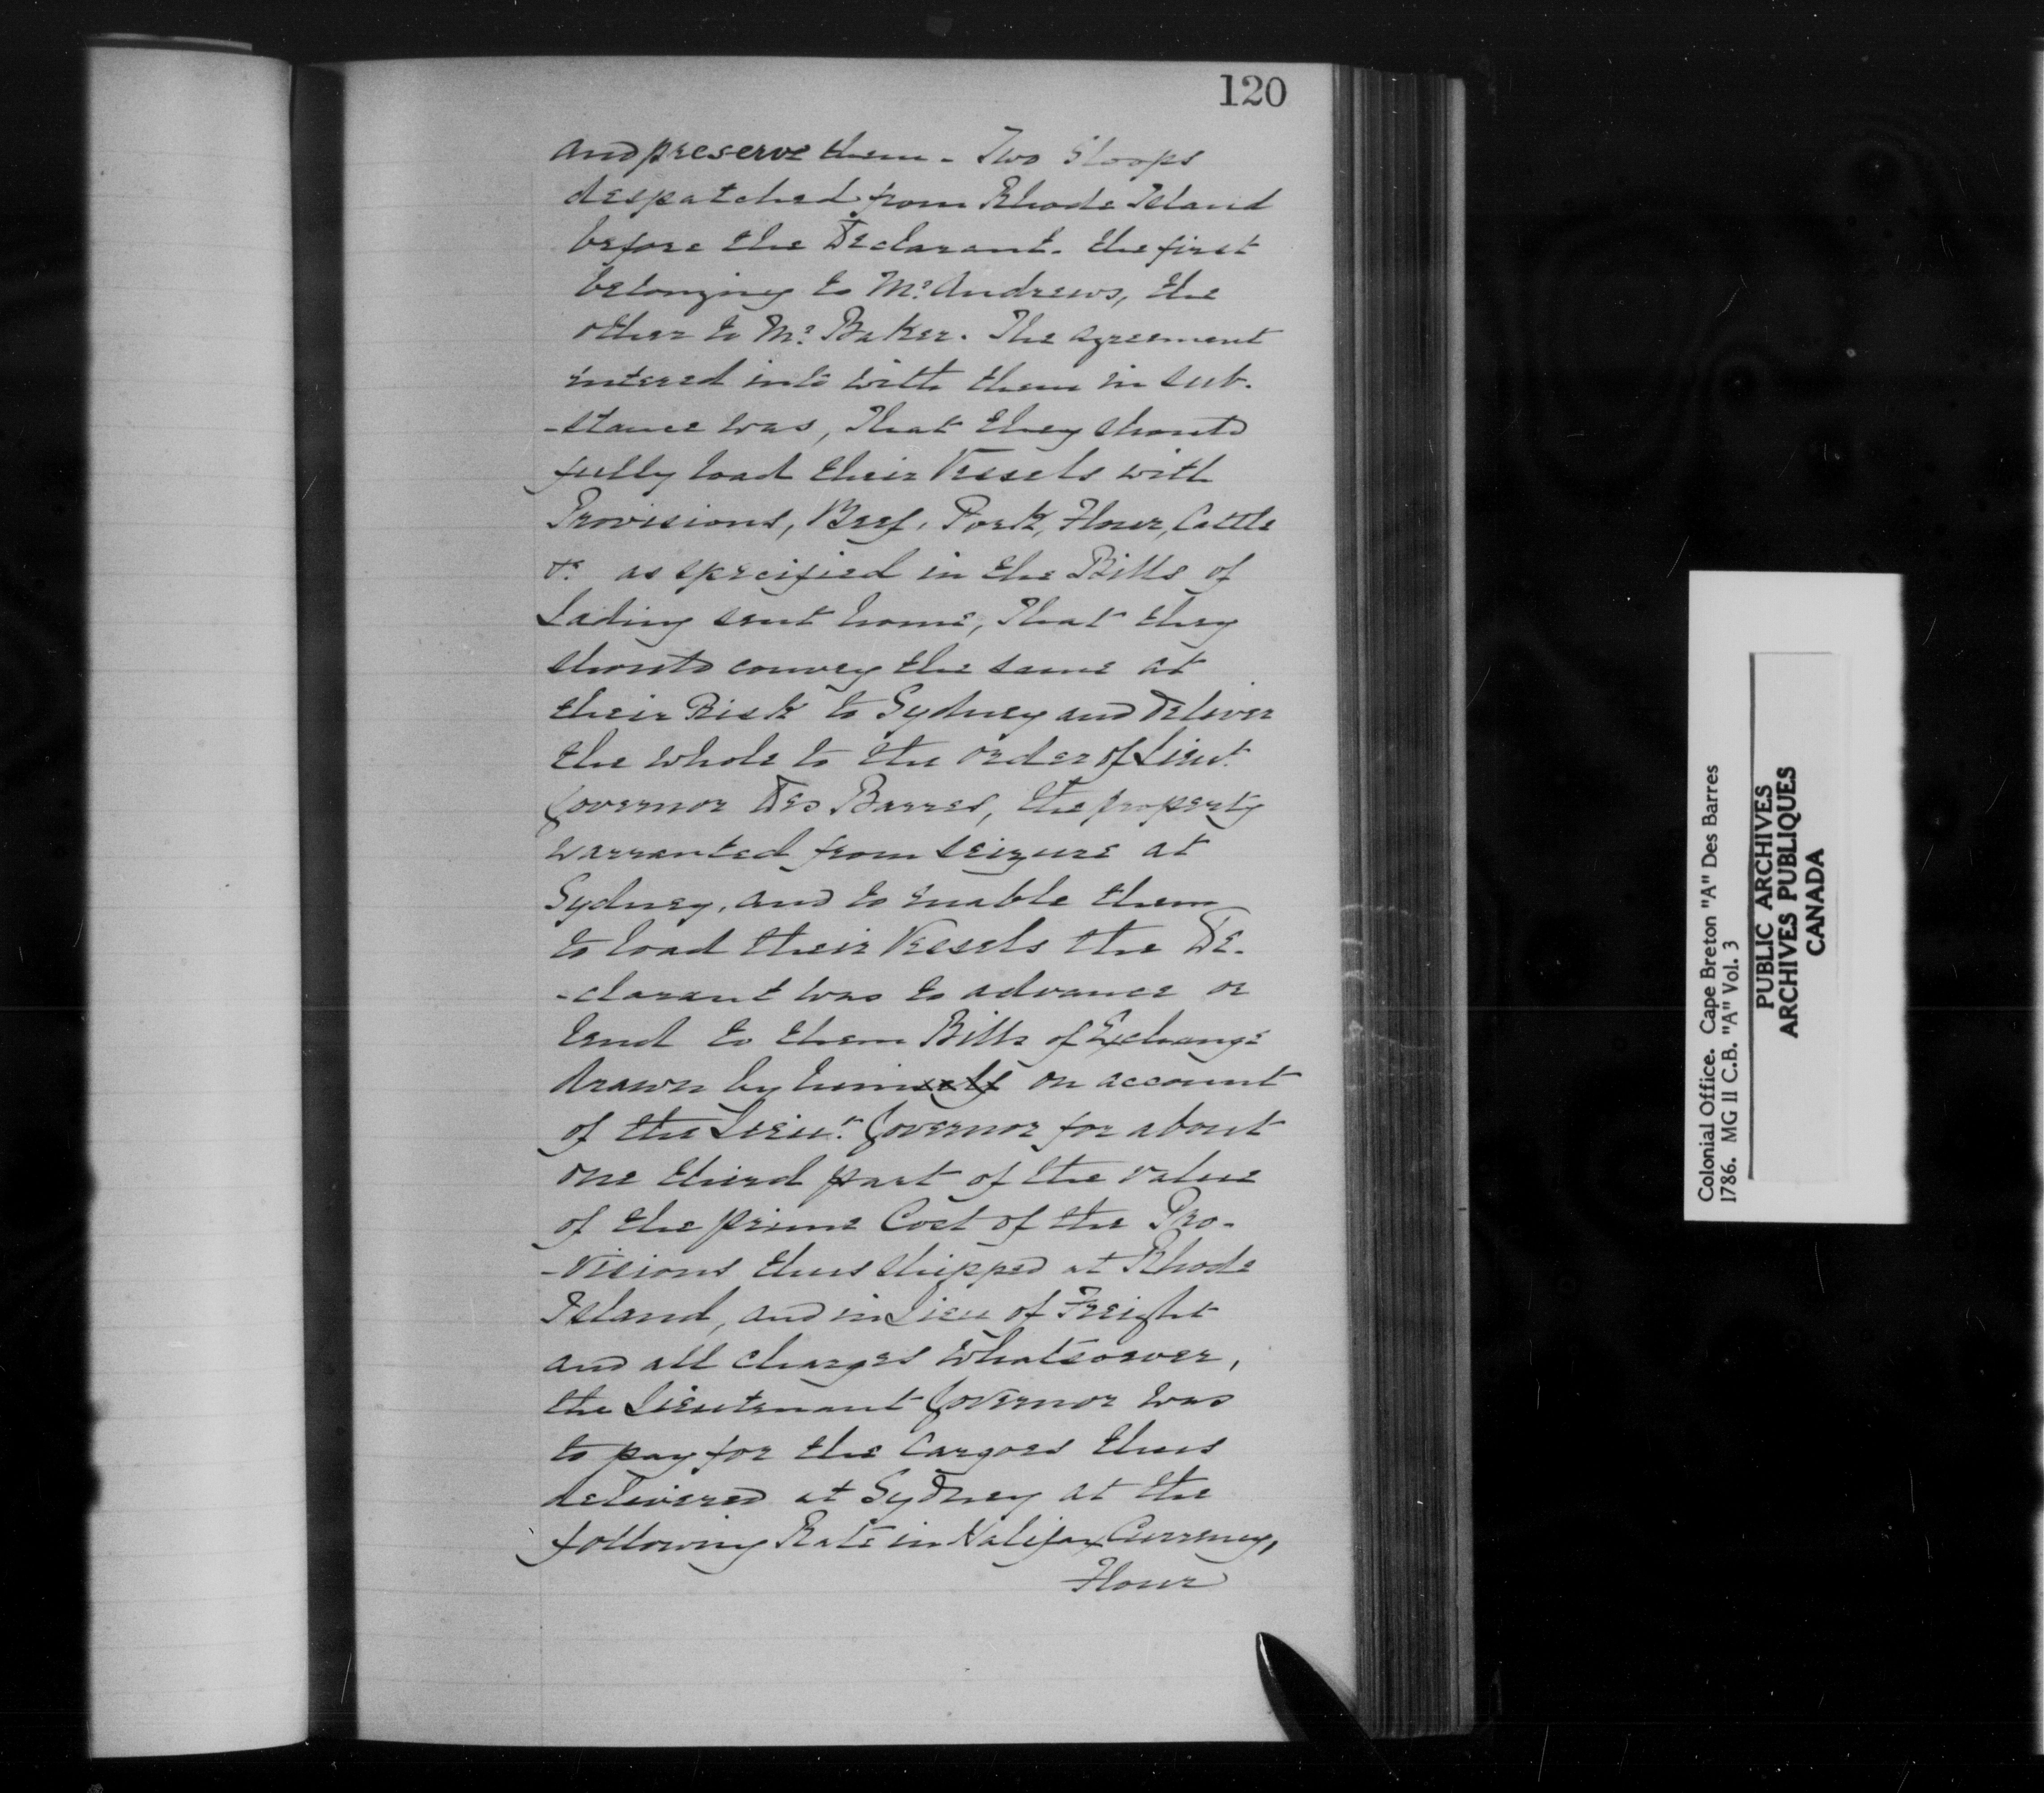 120
and preserve them - Two Sloops
despatched from Rhode Island
before the Declarant. the first
belonging to Mr Andrews, the
other to Mr Baker. The agreement
entered into with them in sub-
-stance was, That they should
fully load their Vessels with
Provisions, Beef, Pork, Flour, Cattle
&c as specified in the Bills of
Lading sent home, That they
should convey the same at
their Risk to Sydney and Deliver
the whole to the order of Lieut.
Governor Des Barres, the property
warranted from seizure at
Sydney, and to enable them
to load their Vessels the De-
-clarant was to advance or
lend to them Bills of Exchange
drawn by him on account
of the Lieut. Governor for about
one third part of the value
of the prime Cost of the Pro-
-visions thus shipped at Rhode
Island, and in Lieu of Freight
and all charges whatsoever,
the Lieutenant Governor was
to pay for the Cargoes thus
delivered at Sydney at the
following Rate in Halifax Currency,
Flour
Colonial Office. Cape Breton "A" Des Barres
1786. MG 11 C.B. "A" Vol. 3
PUBLIC ARCHIVES
ARCHIVES PUBLIQUES
CANADA